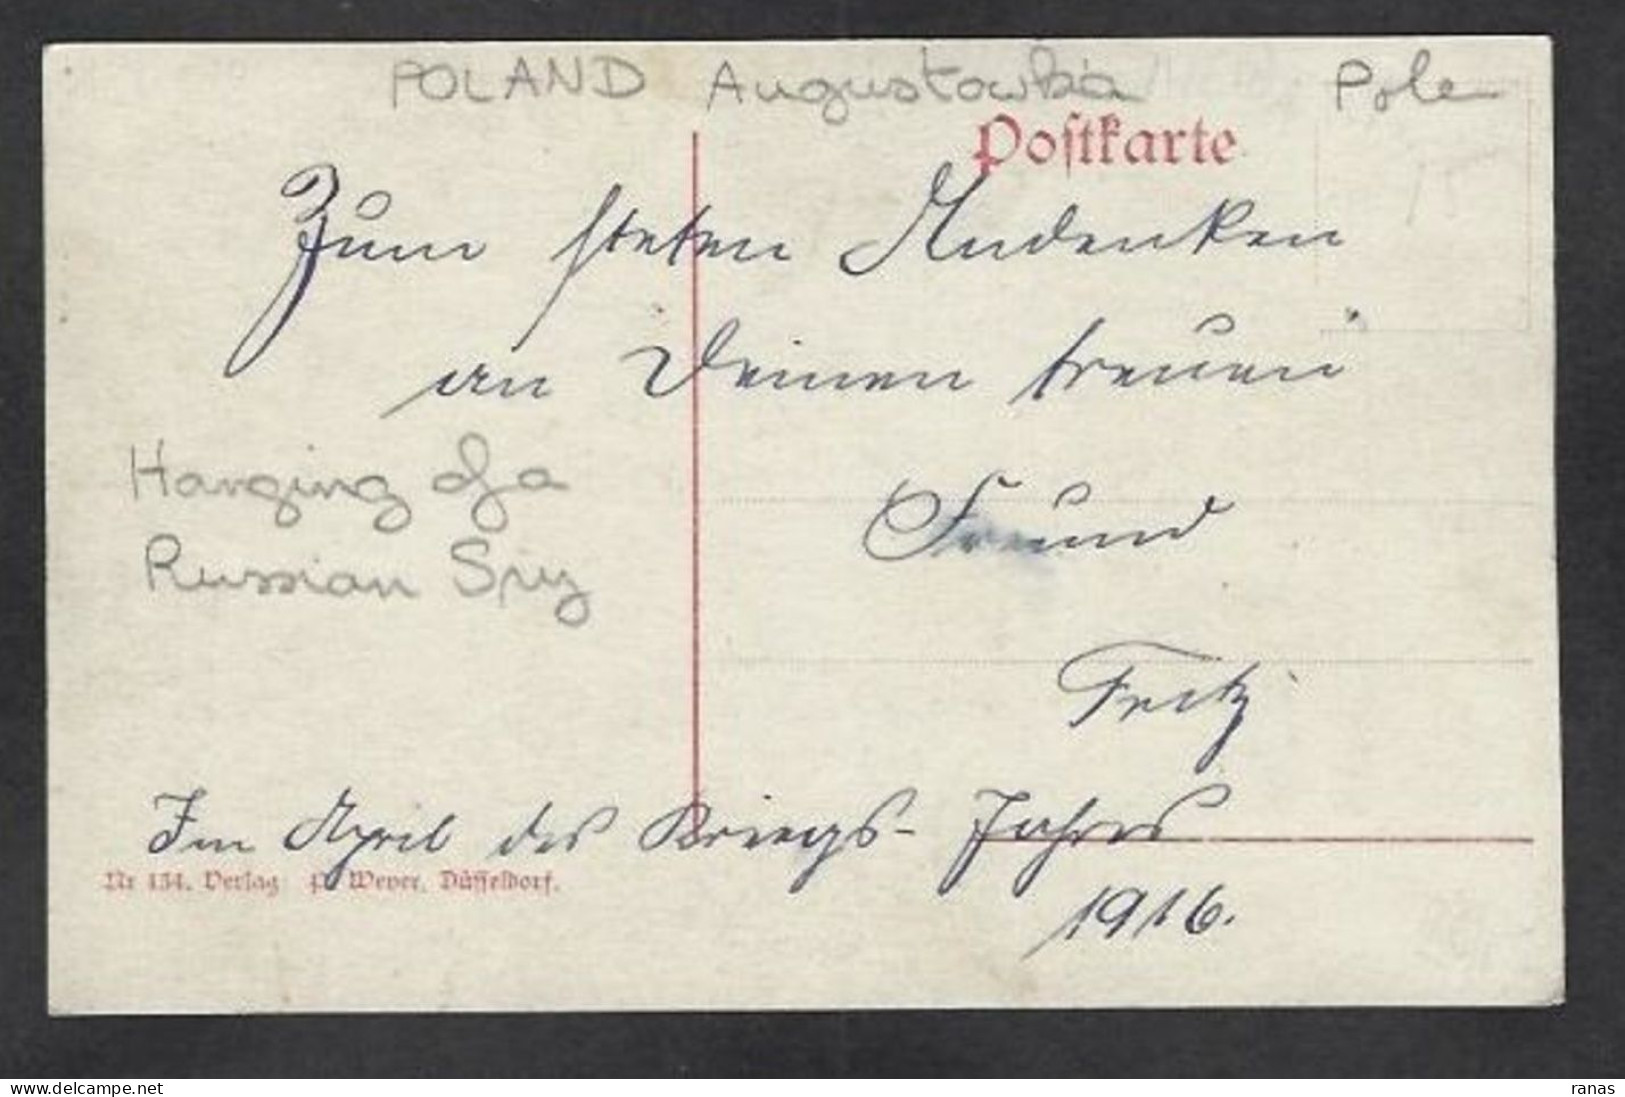 POLAND Augustowka Pole
Postkarte
15
Zum steten Andenken
an Deinen treuen
Hanging of a
Russian Spy
Freund
Fritz
Im April des Kriegs-Jahres
Nr 134. Verlag P. Weyer, Düsseldorf.
1916.
ranas